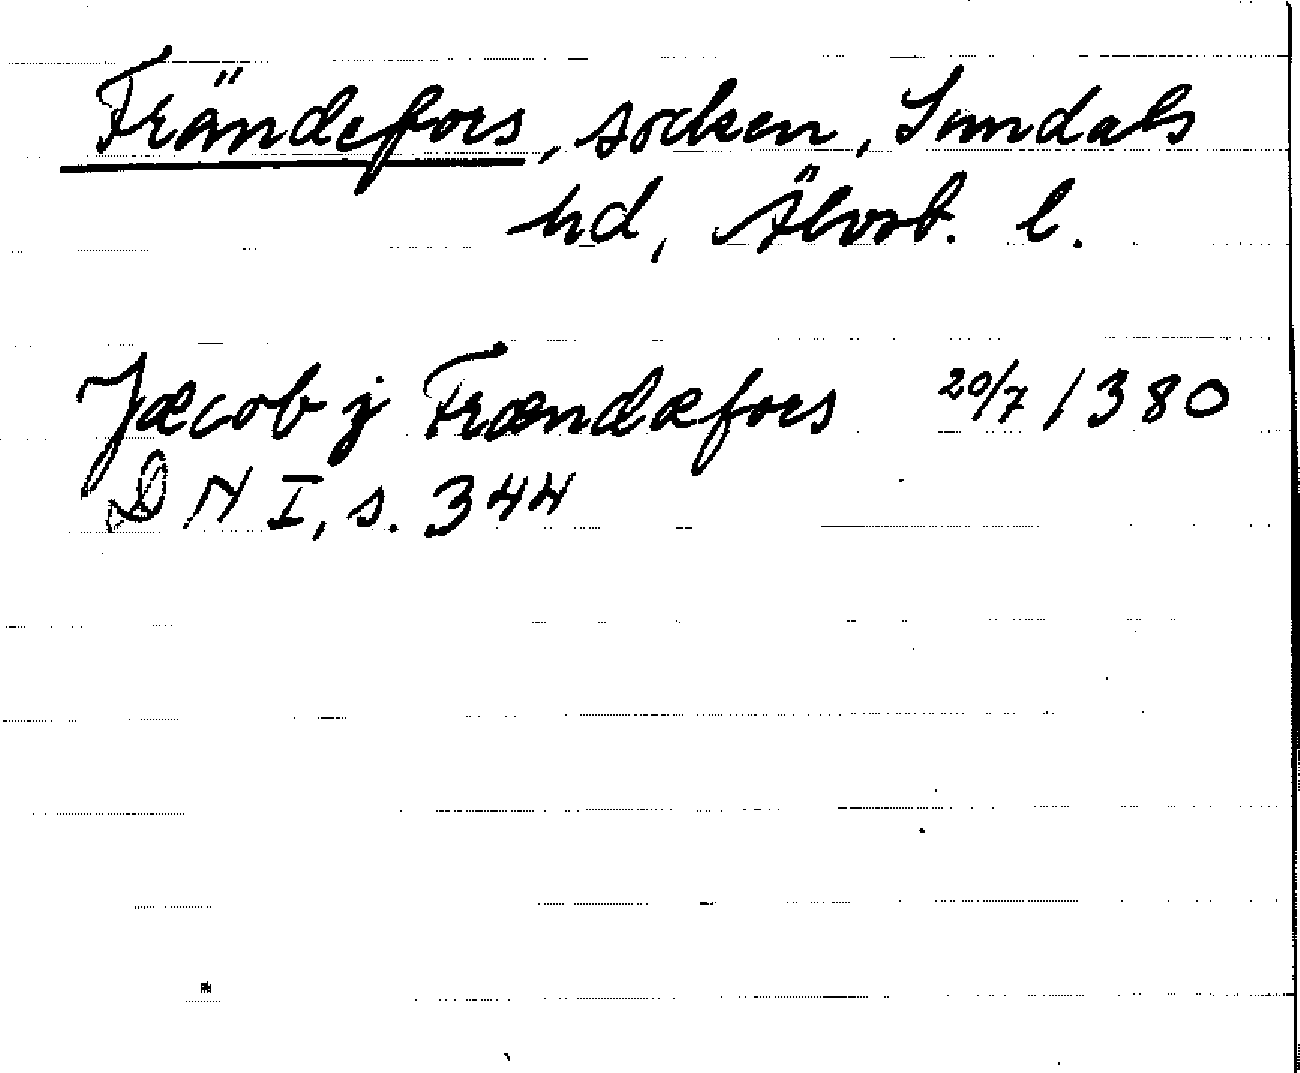 Frändefors, socken, Sundals
hd, Älvsb. l.
Jacob j Frændæfors 20/7 1380
DN I, s. 344